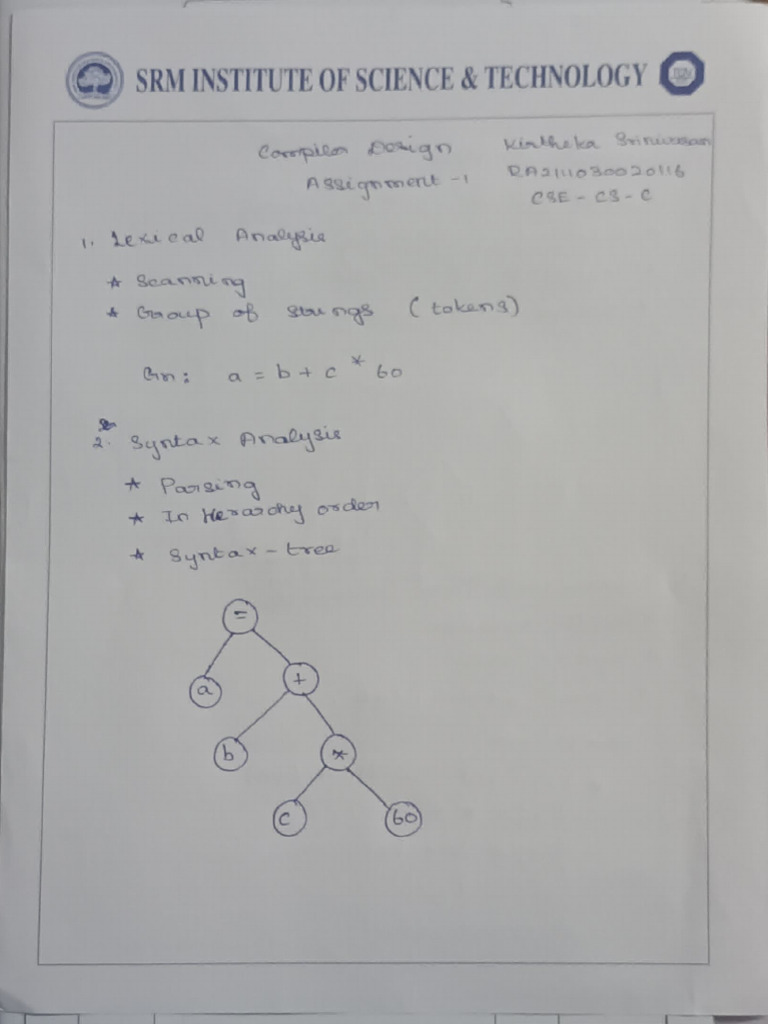 SRM INSTITUTE OF SCIENCE & TECHNOLOGY
Compiler Design
Kirtheka Srinivasan
Assignment -1
RA2111030020116
CSE - CS - C
1. Lexical Analysis
* Scanning
* Group of strings (tokens)
Gn: a = b + c * 60
2. Syntax Analysis
* Parsing
* In Herarchy order
* Syntax - tree
=
a +
b *
c 60